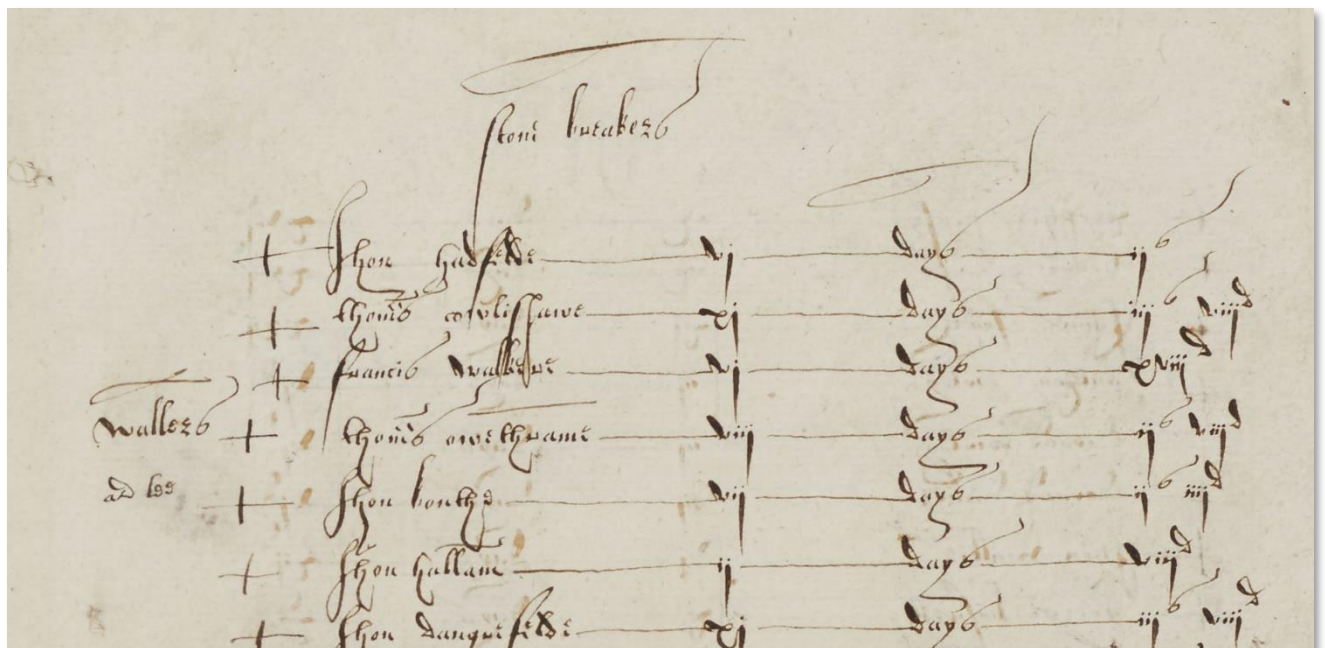 stone breakers
Jhon hadfelde vj days ij s
thoms cowlishawe xj days iij s viij d
francis walkere vj days xviij d
wallers thoms owtthrame viij days ij s viij d
ad lee Jhon bouthe vij days ij s iiij d
Jhon hallam ij days viij d
Jhon dangerfelde xj days iij s viij d